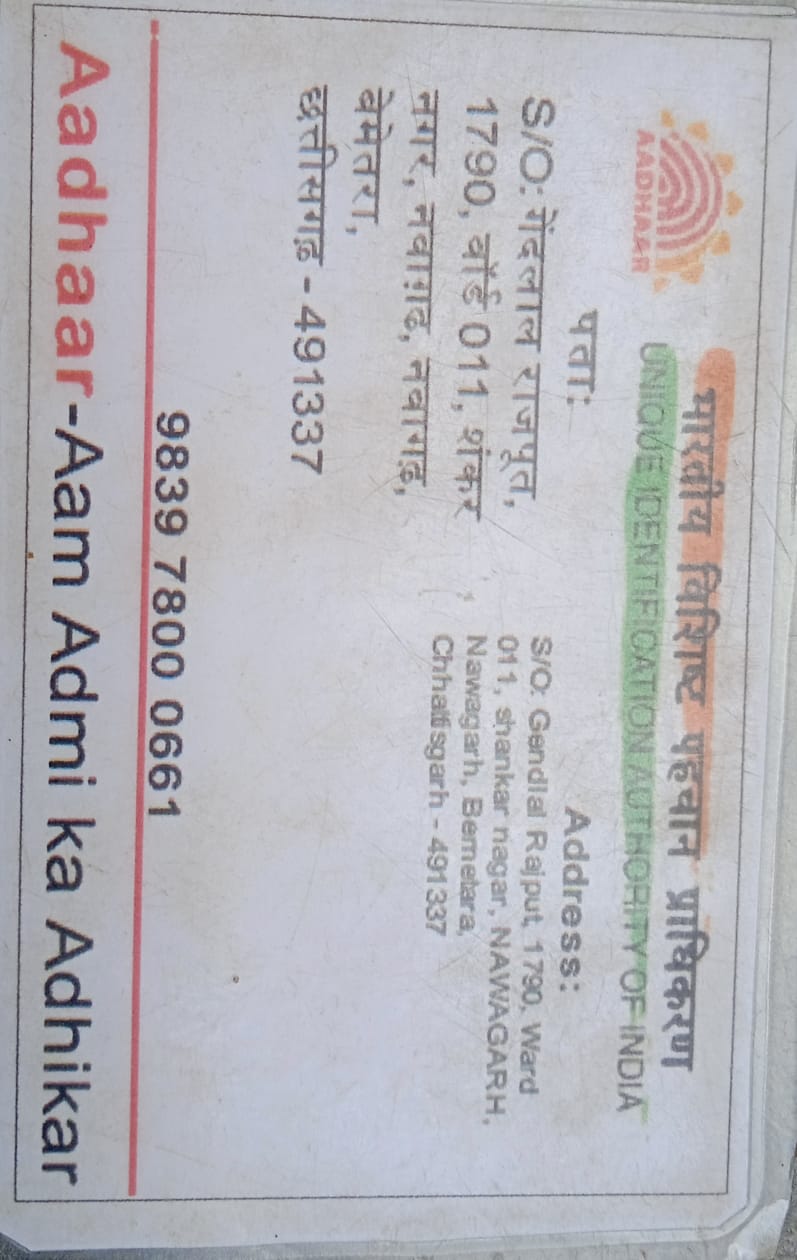 भारतीय विशिष्ट पहचान प्राधिकरण
UNIQUE IDENTIFICATION AUTHORITY OF INDIA
AADHAAR
पता:
S/O: गेंदलाल राजपूत,
1790, वॉर्ड 011, शंकर
नगर, नवागढ, नवागढ़,
बेमेतरा,
छत्तीसगढ़ - 491337
Address:
S/O: Gendlal Rajput, 1790, Ward
011, shankar nagar, NAWAGARH,
Nawagarh, Bemetara,
Chhattisgarh - 491337
9839 7800 0661
Aadhaar-Aam Admi ka Adhikar